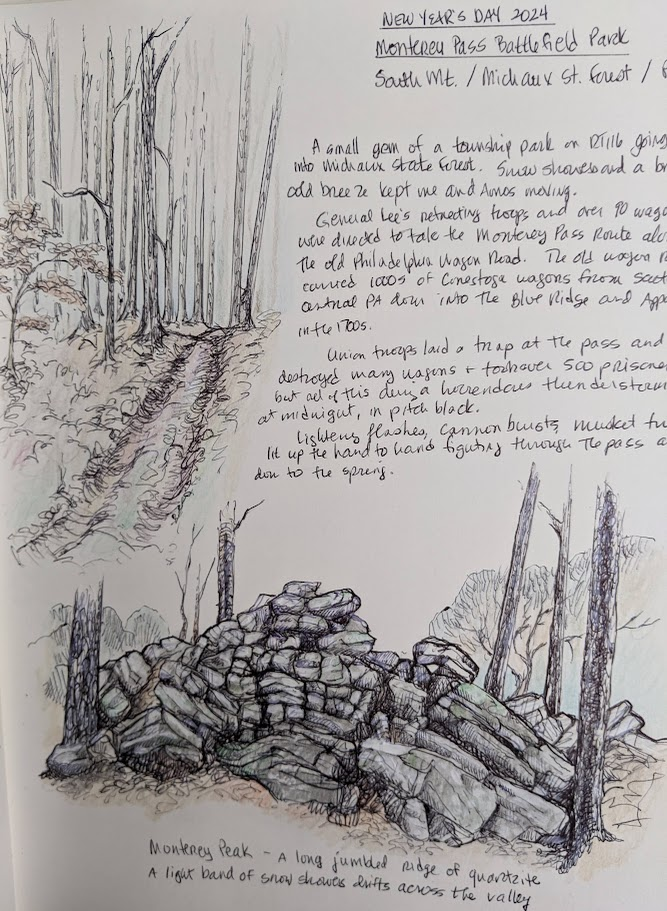 NEW YEAR'S DAY 2024
Monterey Pass Battlefield Park
South Mt. / Michaux St. Forest /
A small gem of a township park on RT.116 going
into Michaux State Forest. Snow showers and a
cold breeze kept me and Amos moving.
General Lee's retreating troops and over 90
were directed to take the Monterey Pass Route
the old Philadelphia Wagon Road. The old wagon
carried 1000s of Conestoga wagons from
central PA down into the Blue Ridge and
in the 1700s.
Union troops laid a trap at the pass and
destroyed many wagons + took over 500
but all of this during a horrendous thunderstorm
at midnight, in pitch black.
Lightning flashes, cannon bursts, musket
lit up the hand to hand fighting through the pass
down to the spring.
Monterey Peak - A long jumbled ridge of quartzite
A light band of snow showers drifts across the valley